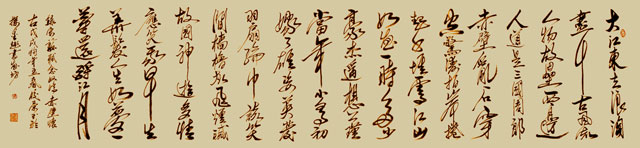 大江東去浪淘
盡千古風流
人物故壘西邊
人道是三國周郎
赤壁亂石穿
空驚濤拍岸捲
起千堆雪江山
如畫一時多少
豪傑遙想公瑾
當年小喬初
嫁了雄姿英發
羽扇綸巾談笑
間檣櫓灰飛煙滅
故國神遊多情
應笑我早生
華髮人生如夢一
尊還酹江月
蘇軾詞念奴嬌赤壁懷
古戊戌